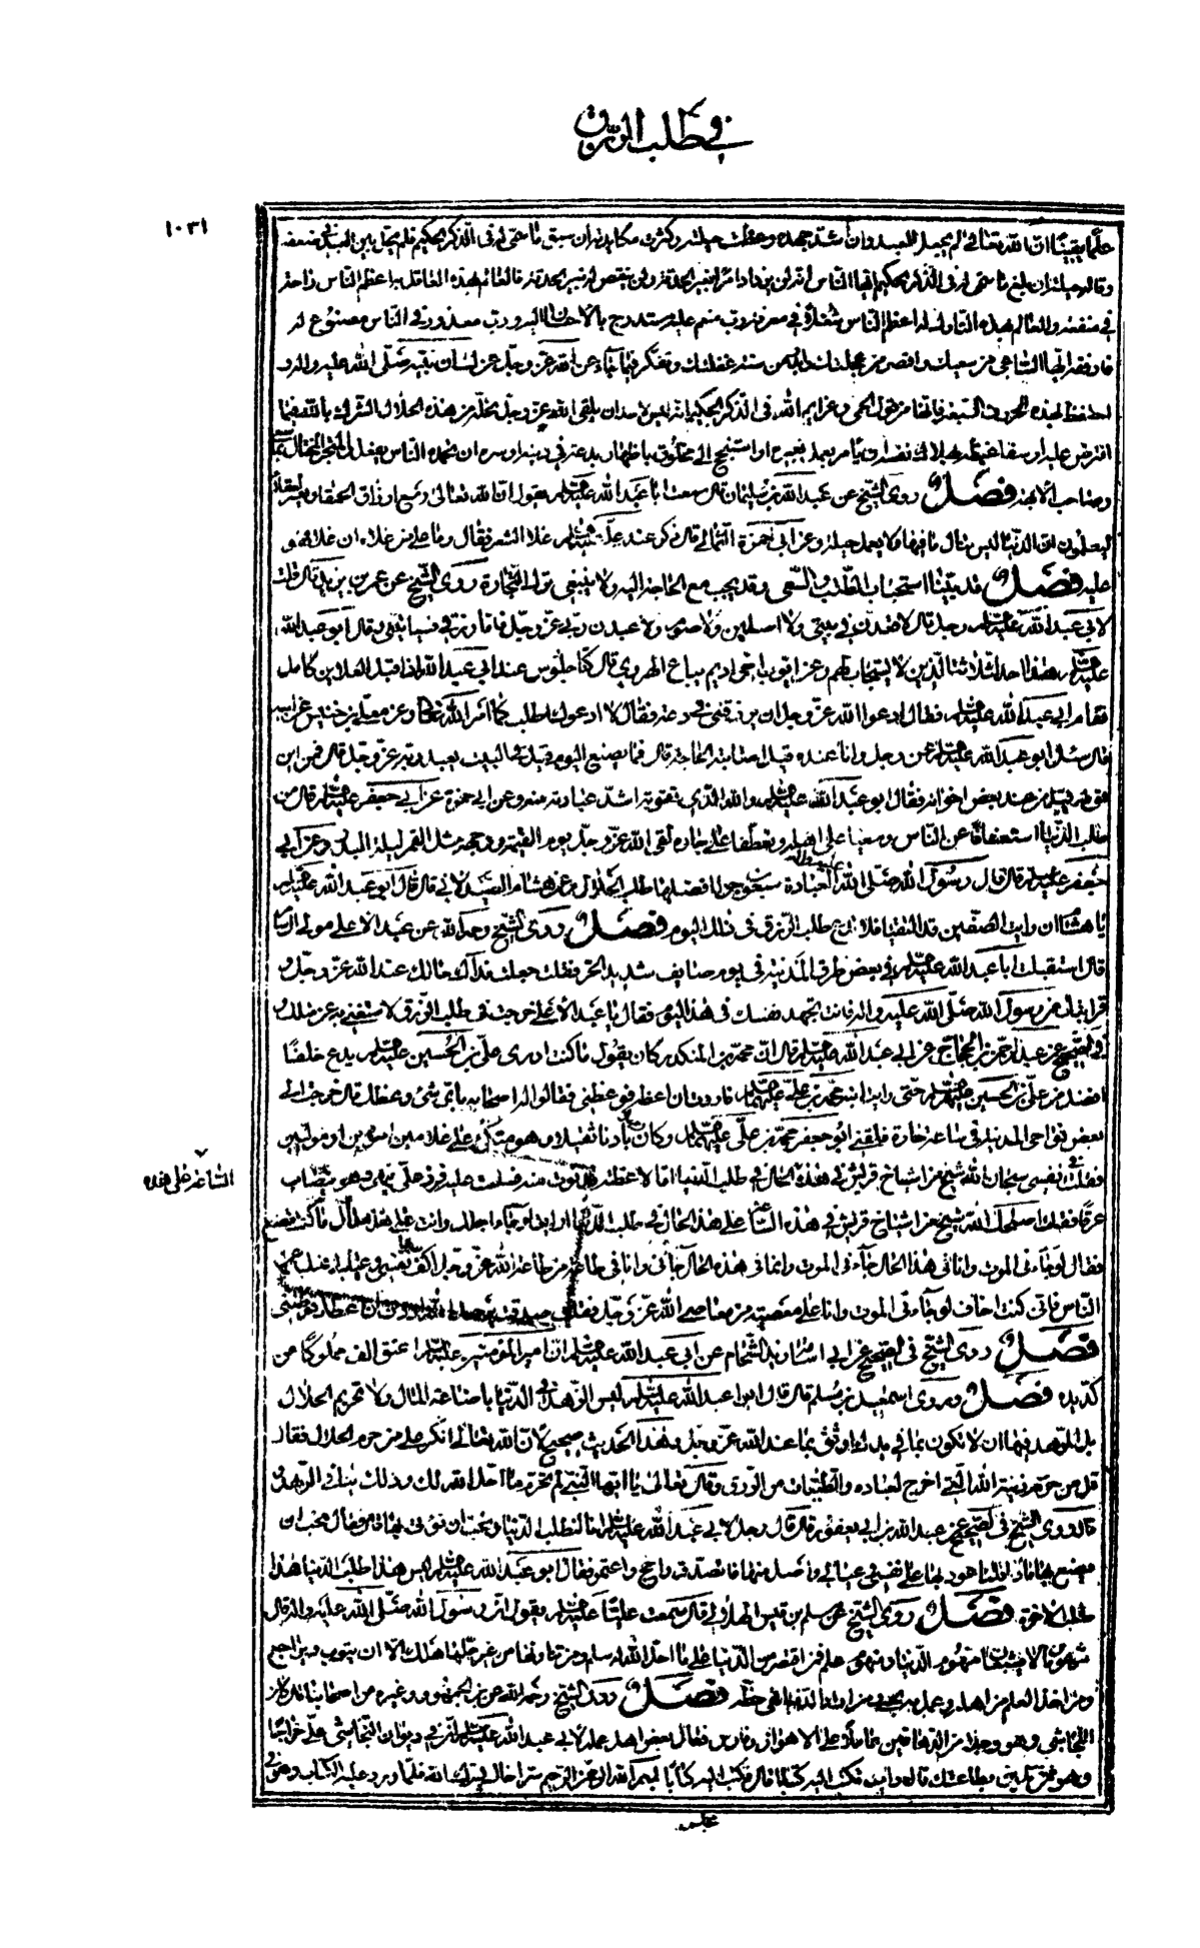 في طلب الرزق
١٠٣١
علما يقينا ان الله تعالى لم يجعل للعبد وان اشتد جهده وعظمت حيلته وكثرت مكايدته ان يسبق ما سمى له فى الذكر الحكيم فلم يحل بين العبد في ضعفه
وقلة حيلته ان يبلغ ما سمى له فى الذكر الحكيم ايها الناس انه لن يزداد امرء نقيرا بحذقه ولن ينقص امرء نقيرا لحمقه فالعالم بهذا العامل به اعظم الناس راحة
في منفعته والعالم بهذا التارك له اعظم الناس شغلا في مضرته ورب منعم عليه مستدرج بالاحسان اليه ورب مغرور فى الناس مصنوع له
فارفق ايها الساعي من سعيك واقصر من عجلتك وانتبه من سنة غفلتك وتفكر فيما جاء عن الله عز وجل على لسان نبيه صلى الله عليه واله و
احتفظ بهذه الحروف السبعة فانها من قول اهل الحجى ومن عزائم الله فى الذكر الحكيم انه ليس لاحد ان يلقى الله عز وجل بخلة من هذه الخلال الشرك بالله فيما
افترض عليه او شفاء غيظ بهلاك نفس او يامر بعمل بغيره او استنجح الى مخلوق باظهار بدعة في دينه او سره ان يحمده الناس بما لم يفعل والمتجبر المختال
وصاحب الابهة فصل روى الشيخ عن عبد الله بن سليمان قال سمعت ابا عبد الله عليه السلم يقول ان الله تعالى وسع ارزاق الحمقاء ليعتبر العقلاء
ليعلموا ان الدنيا ليس ينال ما فيها بعمل ولا حيلة وعن ابي حمزة الثمالي قال ذكر عند علي بن الحسين عليه السلم غلاء السعر فقال وما علي من غلائه ان غلا فهو
عليه فصل قد بينا استحباب الطلب والسعى وقد يجب مع الحاجة اليه ولا ينبغي ترك التجارة روى الشيخ عن عمر بن يزيد قال قلت
لابي عبد الله عليه السلم رجل قال لاقعدن في بيتي ولاصلين ولاصومن ولاعبدن ربي عز وجل فاما رزقي فسياتيني قال ابو عبد الله
عليه السلم هذا احد الثلاثة الذين لا يستجاب لهم وعن ايوب اخي اديم بياع الهروي قال كنا جلوس عند ابي عبد الله اذ اقبل العلا بن كامل
فقام ابي عبد الله عليه السلم فقال ادعوا الله عز وجل ان يرزقني في دعة فقال لا ادعو لك اطلب كما امر الله تعالى وعن معلى بن خنيس عن ابيه
قال سئل ابو عبد الله عليه السلم عن رجل وانا عنده فقيل اصابته الحاجة قال فما يصنع اليوم قيل في البيت يعبد ربه عز وجل قال فمن اين
قوته قيل من عند بعض اخوانه فقال ابو عبد الله عليه السلم والله الذي يقوته اشد عبادة منه وعن ابي حمزة عن ابي جعفر عليه السلم قال من
طلب الدنيا استعفافا عن الناس وسعيا على اهله وتعطفا على جاره لقى الله عز وجل يوم القيمة ووجهه مثل القمر ليلة البدر وعن ابي
جعفر عليه السلم قال قال رسول الله صلى الله عليه واله العبادة سبعون جزءا افضلها طلب الحلال وعن هشام الصيدلاني قال قال ابو عبد الله عليه السلم
يا هشام ان رايت الصفين قد التقيا فلا تدع طلب الرزق فى ذلك اليوم فصل روى الشيخ رحمه الله عن عبد الاعلى مولى ال سام
قال استقبلت ابا عبد الله عليه السلم في بعض طرق المدينة في يوم صايف شديد الحر فقلت جعلت فداك حالك عند الله عز وجل و
قرابتك من رسول الله صلى الله عليه واله فانت تجهد نفسك فى هذا اليوم فقال يا عبد الاعلى خرجت فى طلب الرزق لاستغني به عن مثلك
وفى الصحيح عن عبد الرحمن بن الحجاج عن ابي عبد الله عليه السلم قال ان محمد بن المنكدر كان يقول ما كنت ارى علي بن الحسين عليه السلم يدع خلفا
افضل من علي بن الحسين عليه السلم حتى رايت ابنه محمد بن علي عليهما السلم فاردت ان اعظه فوعظني فقالوا له اصحابه باي شئ وعظك قال خرجت الى
بعض نواحي المدينة في ساعة حارة فلقيني ابو جعفر محمد بن علي عليهما السلم وكان بادنا ثقيلا وهو متكئ على غلامين اسودين او موليين
فقلت في نفسي سبحان الله شيخ من اشياخ قريش في هذه الحال في طلب الدنيا اما لاعظنه فدنوت منه فسلمت عليه فرد علي بنهر وهو يتصاب
الساعة على هذه
عرقا فقلت اصلحك الله شيخ من اشياخ قريش في هذه الساعة على هذا الحال في طلب الدنيا ارايت لو جاء اجلك وانت على هذا الحال ما كنت تصنع
فقال لو جاءني الموت وانا في هذا الحال جاءني الموت وانا في هذه الحال جاءني وانا في طاعة من طاعة الله عز وجل اكف بها نفسي وعيالي عنك وعن
الناس فاني كنت اخاف لو جاءني الموت وانا على معصية من معاصي الله عز وجل فقلت صدقت يرحمك الله اردت ان اعظك فوعظتني
فصل روى الشيخ فى الصحيح عن ابي اسامة زيد الشحام عن ابي عبد الله عليه السلم ان امير المؤمنين عليه السلم اعتق الف مملوك من
كد يده فصل وروى اسمعيل بن مسلم قال قال ابو عبد الله عليه السلم ليس الزهد في الدنيا باضاعة المال ولا تحريم الحلال
بل الزهد فيها ان لا تكون بما في يدك اوثق بما عند الله عز وجل وهذا الحديث صحيح لان الله تعالى انكر على من حرم الحلال فقال
قل من حرم زينة الله التي اخرج لعباده والطيبات من الرزق وقال تعالى يا ايها النبي لم تحرم ما احل الله لك وذلك ينافي الزهد
قال روى الشيخ في الصحيح عن عبد الله بن ابي يعفور قال قال رجل لابي عبد الله عليه السلم انا لنطلب الدنيا ونحب ان نؤتى بها قال فقال تحب ان
تصنع بها ماذا قال اعود بها على نفسي وعيالي واصل منها واتصدق واحج واعتمر فقال ابو عبد الله عليه السلم ليس هذا طلب الدنيا هذا
طلب الاخرة فصل روى الشيخ عن سليم بن قيس الهلالي قال سمعت عليا عليه السلم يقول قال رسول الله صلى الله عليه واله قال
منهومان لا يشبعان منهوم الدنيا ومنهوم علم فمن اقتصر من الدنيا على ما احل الله له سلم ومن تناولها من غير حلها هلك الا ان يتوب ويراجع
ومن اخذ العلم من اهله وعمل به نجى ومن اراد به الدنيا فهي حظه فصل روى الشيخ رحمه الله عن وغيره من اصحابنا قال كان
النجاشي وهو رجل من الدهاقين عاملا على الاهواز وفارس فقال بعض اهل عمله لابي عبد الله عليه السلم ان في ديوان النجاشي علي خراجا
وهو ممن يدين بطاعتك فان رايت ان تكتب اليه كتابا قال فكتب اليه كتابا بسم الله الرحمن الرحيم سر اخاك يسرك الله فلما ورد عليه الكتاب وهو في
مجلسه